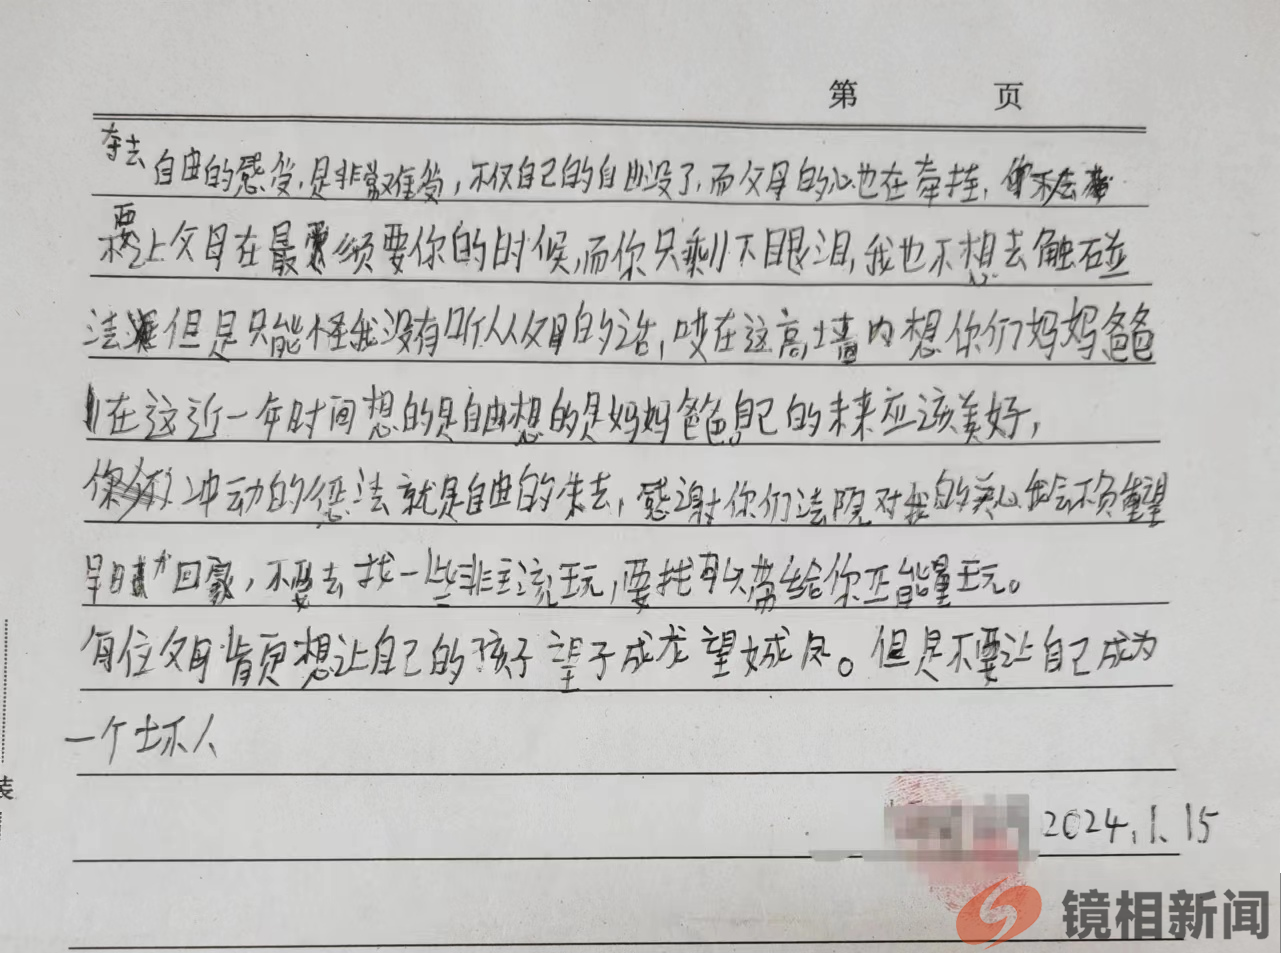 第 页
夺去自由的感觉,是非常难受,不仅自己的自由没了,而父母的心也在牵挂,
不要让父母在最须要你的时候,而你只剩下眼泪,我也不想去触碰
法律但是只能怪我没有听从父母的话,哎在这高墙内想你们妈妈爸爸
在这近一年时间想的是自由想的是妈妈爸爸,自己的未来应该美好,
你冲动的惩法就是自由的失去,感谢你们法院对我的关心我会不负重望
早日回家,不要去找一些非主流玩,要找可以带给你正能量玩。
每位父母肯定想让自己的孩子望子成龙望女成凤。但是不要让自己成为
一个坏人
2024.1.15
装
镜相新闻